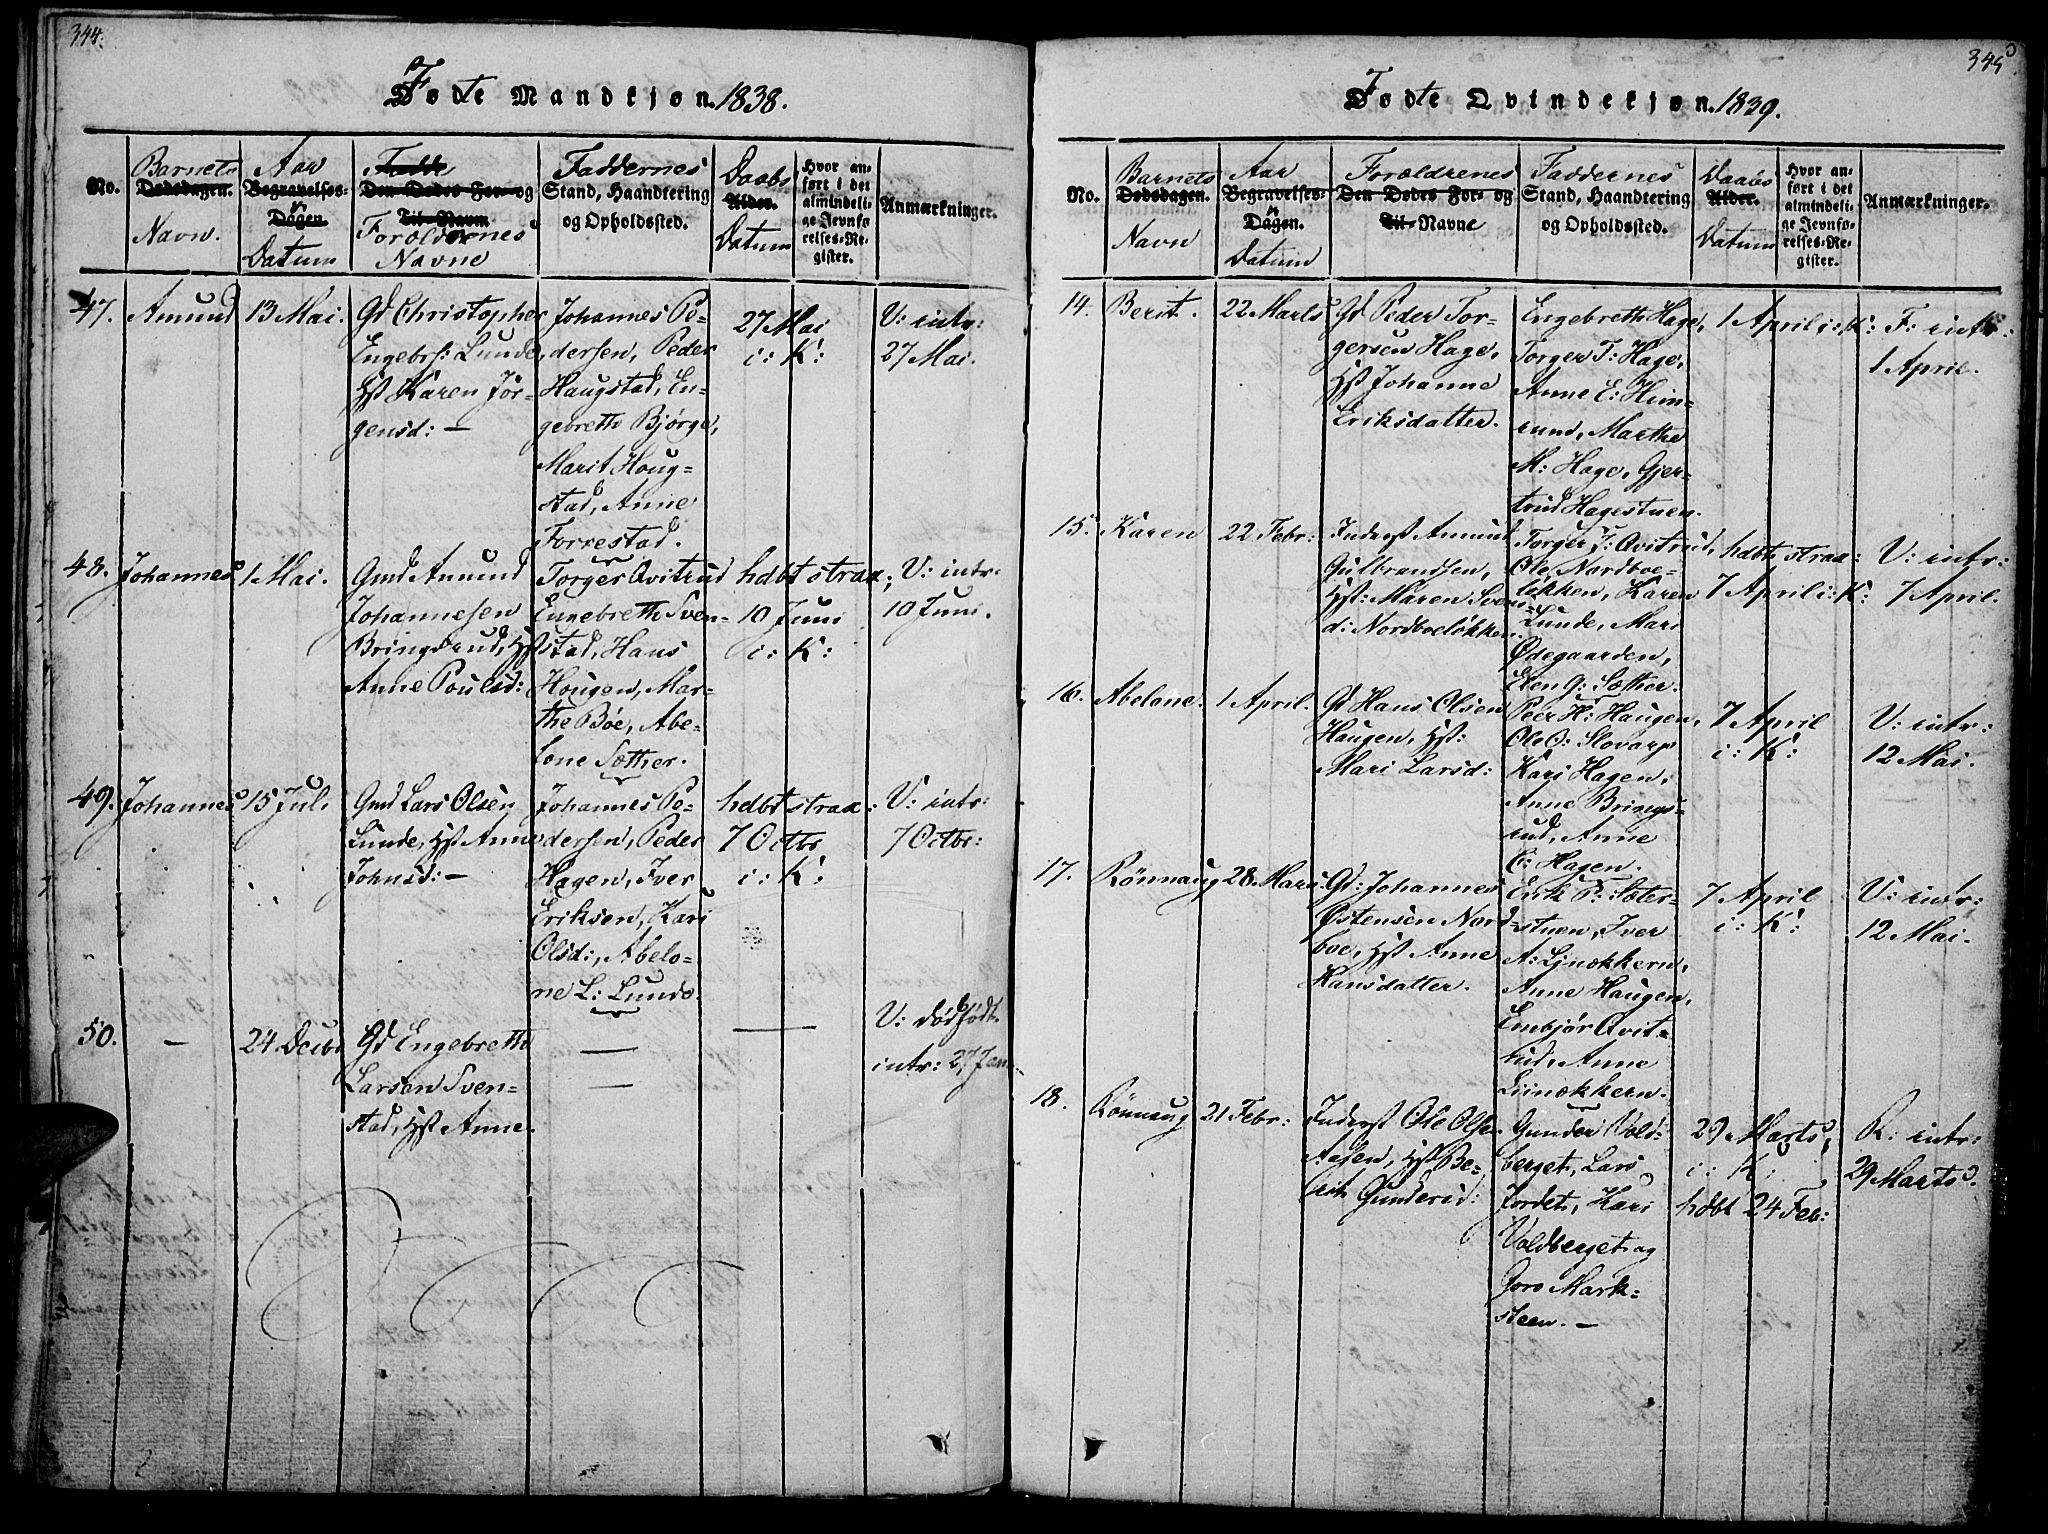 344.
Fødte Mandkjøn. 1838.
No.
Barnets
Dødsdagen.
Navn.
Aar
Begravelses-
Dagen.
og
Datum
Fadde
Den Dødes For- og
Til-Navn
Forældrenes
Navne
Faddernes
Stand, Haandtering
og Opholdssted.
Daabs
Alder.
Datum
Hvor an-
ført i det
almindeli-
ge Jevnfø-
relses-Re-
gister.
Anmærkninger.
47.
Amund
13 Mai.
Gd Christopher
Engebrs: Lunde,
Hst Karen Jör-
gensd: —
Johannes Pe-
dersen, Peder
Haugstad, En-
gebreth Bjørge,
Marit Houg-
stad, Anne
Forrestad.
27 Mai
i: K:
V: intr:
27 Mai.
48.
Johannes
1 Mai.
Gmd Amund
Johannesen
Bringsrud, Hst
Anne Poulsd:
Torger Qvitrud
Engebreth Sven-
stad, Hans
Hougen, Mar-
the Böe, Abe-
lone Sæther.
hdbt strax;
10 Juni
i: K:
V: intr:
10 Juni.
49.
Johannes
15 Juli
Gmd Lars Olsen
Lunde, Hst Anne
Johnsd: —
Johannes Pe-
dersen, Peder
Hagen, Iver
Eriksen, Kari
Olsd:, Abelo-
ne L: Lunde.
hdbt strax:
7 Octbr
i: K:
V: intr:
7 Octbr:
50.
—
24 Decbr
Gd Engebreth
Larsen Sven-
stad, Hst Anne.
—
—
—
V: dødfødt.
intr: 27 Jan.
345
Fødte Qvindekjøn. 1839.
No.
Barnets
Dødsdagen.
Navn
Aar
Begravelses-
Dagen.
og
Datum
Forældrenes
Den Dødes For- og
Til-Navne
Faddernes
Stand, Haandtering
og Opholdssted.
Daabs
Alder.
Datum
Hvor an-
ført i det
almindeli-
ge Jevnfø-
relses-Re-
gister.
Anmærkninger.
14.
Berit.
22 Marts
Gd Peder Tor-
gersen Hage,
Hst Johanne
Eriksdatter.
Engebreth Hage,
Torger T: Hage,
Anne E: Him-
rum, Marthe
M: Hage, Gjer-
trud Hagestuen.
1 April i: K:
F: intr:
1 April.
15.
Karen
22 Febr:
Inderst Amund
Gulbrandsen,
Hst: Maren Svens-
d: Nordboeløkken.
Torger J: Qvitrud,
Ole Nordboe-
løkken, Karen
Lunde, Mari
Ødegaarden,
Elen G: Sæther.
hdbt strax:
7 April i: K:
V: intr:
7 April.
16.
Abelone.
1 April.
Gd Hans Olsen
Haugen, Hst:
Mari Larsd:
Peer H: Haugen,
Ole O: Slovarp
Kari Hagen,
Anne Brings-
rud, Anne
C: Hagen.
7 April
i: K:
V: intr:
12 Mai.
17.
Rönnaug
28 Mars
Gd: Johannes
Østensen Nord-
boe, Hst Anne
Hansdatter.
Erik P: Sæter-
stuen, Iver
A: Linækkern,
Anne Haugen,
Embjör Qvit-
rud, Anne
Linækkern.
7 April
i: K:
V: intr:
12 Mai.
18.
Rönnaug
21 Febr:
Inderst Ole Olsen
Aasen, Hst Be-
rith Gundersd:
Gunder Vold-
berget, Lars
Jordet, Kari
Voldberget og
Joro Mark-
steen. —
29 Marts,
i: K:
hdbt 24 Feb:
R: intr:
29 Marts.